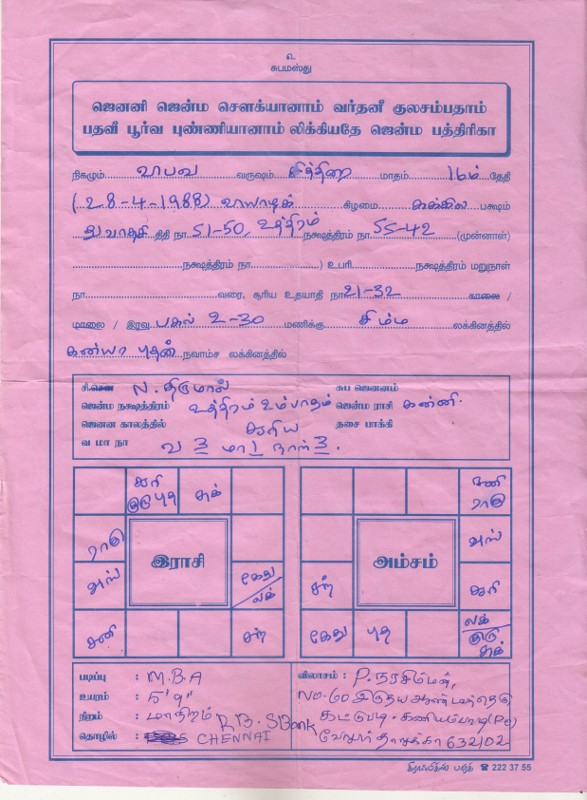 உ
சுபமஸ்து
ஜெனனி ஜென்ம சௌக்யானாம் வர்தனீ குலசம்பதாம்
பதவீ பூர்வ புண்ணியானாம் லிக்கியதே ஜென்ம பத்திரிகா
நிகழும் வருஷம் சித்திரை மாதம் 16ம் தேதி
(28-4-1988) கிழமை பக்ஷம்
துவாதசி திதி நா 51-50, உத்திரம் நக்ஷத்திரம் நா 55-42 (முன்னாள்)
நக்ஷத்திரம் நா ) உபரி நக்ஷத்திரம் மறுநாள்
நா வரை, சூரிய உதயாதி நா 21-32 காலை /
மாலை / இரவு பகல் 2-30 மணிக்கு சிம்ம லக்கினத்தில்
கன்யா புதன் நவாம்ச லக்கினத்தில்
சி. N. திருமால் சுப ஜெனனம்
ஜென்ம நக்ஷத்திரம் உத்திரம் 2ம்பாதம் ஜென்ம ராசி கன்னி
ஜெனன காலத்தில் சூரிய தசை பாக்கி
வ மா நா வ 3 மா 1 நாள் 3
சூரி குரு புத சுக்
ராகு
அங்
சனி
இராசி
கேது
லக்
சந்
சனி ராகு
அங்
சூரி
அம்சம்
சந்
கேது புத
லக் குரு சுக்
படிப்பு : M.B.A
உயரம் : 5'9"
நிறம் : மாநிறம்
தொழில் : R.B.S Bank CHENNAI
விலாசம் : P. நரசிம்மன்,
No. 60
கட்டுபடி. கணியம்பாடி (PO)
வேலூர் தாலுக்கா 632102
கிராஃபிக்ஸ் பதிர் ☎ 222 37 55